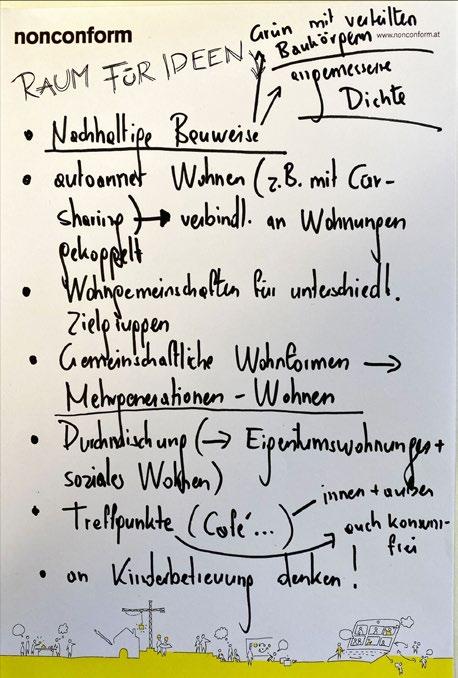 nonconform
www.nonconform.at
RAUM FÜR IDEEN
Grün mit verteilten
Baukörpern
angemessene
Dichte
• Nachhaltige Bauweise
• autoarmes Wohnen (z.B. mit Car-
sharing) → verbindl. an Wohnungen
gekoppelt
• Wohngemeinschaften für unterschiedl.
Zielgruppen
• Gemeinschaftliche Wohnformen →
Mehrgenerationen - Wohnen
• Durchmischung (→ Eigentumswohnungen +
soziales Wohnen)
• Treffpunkte (Café...)
innen + außen
auch konsum-
frei
• an Kinderbetreuung denken!